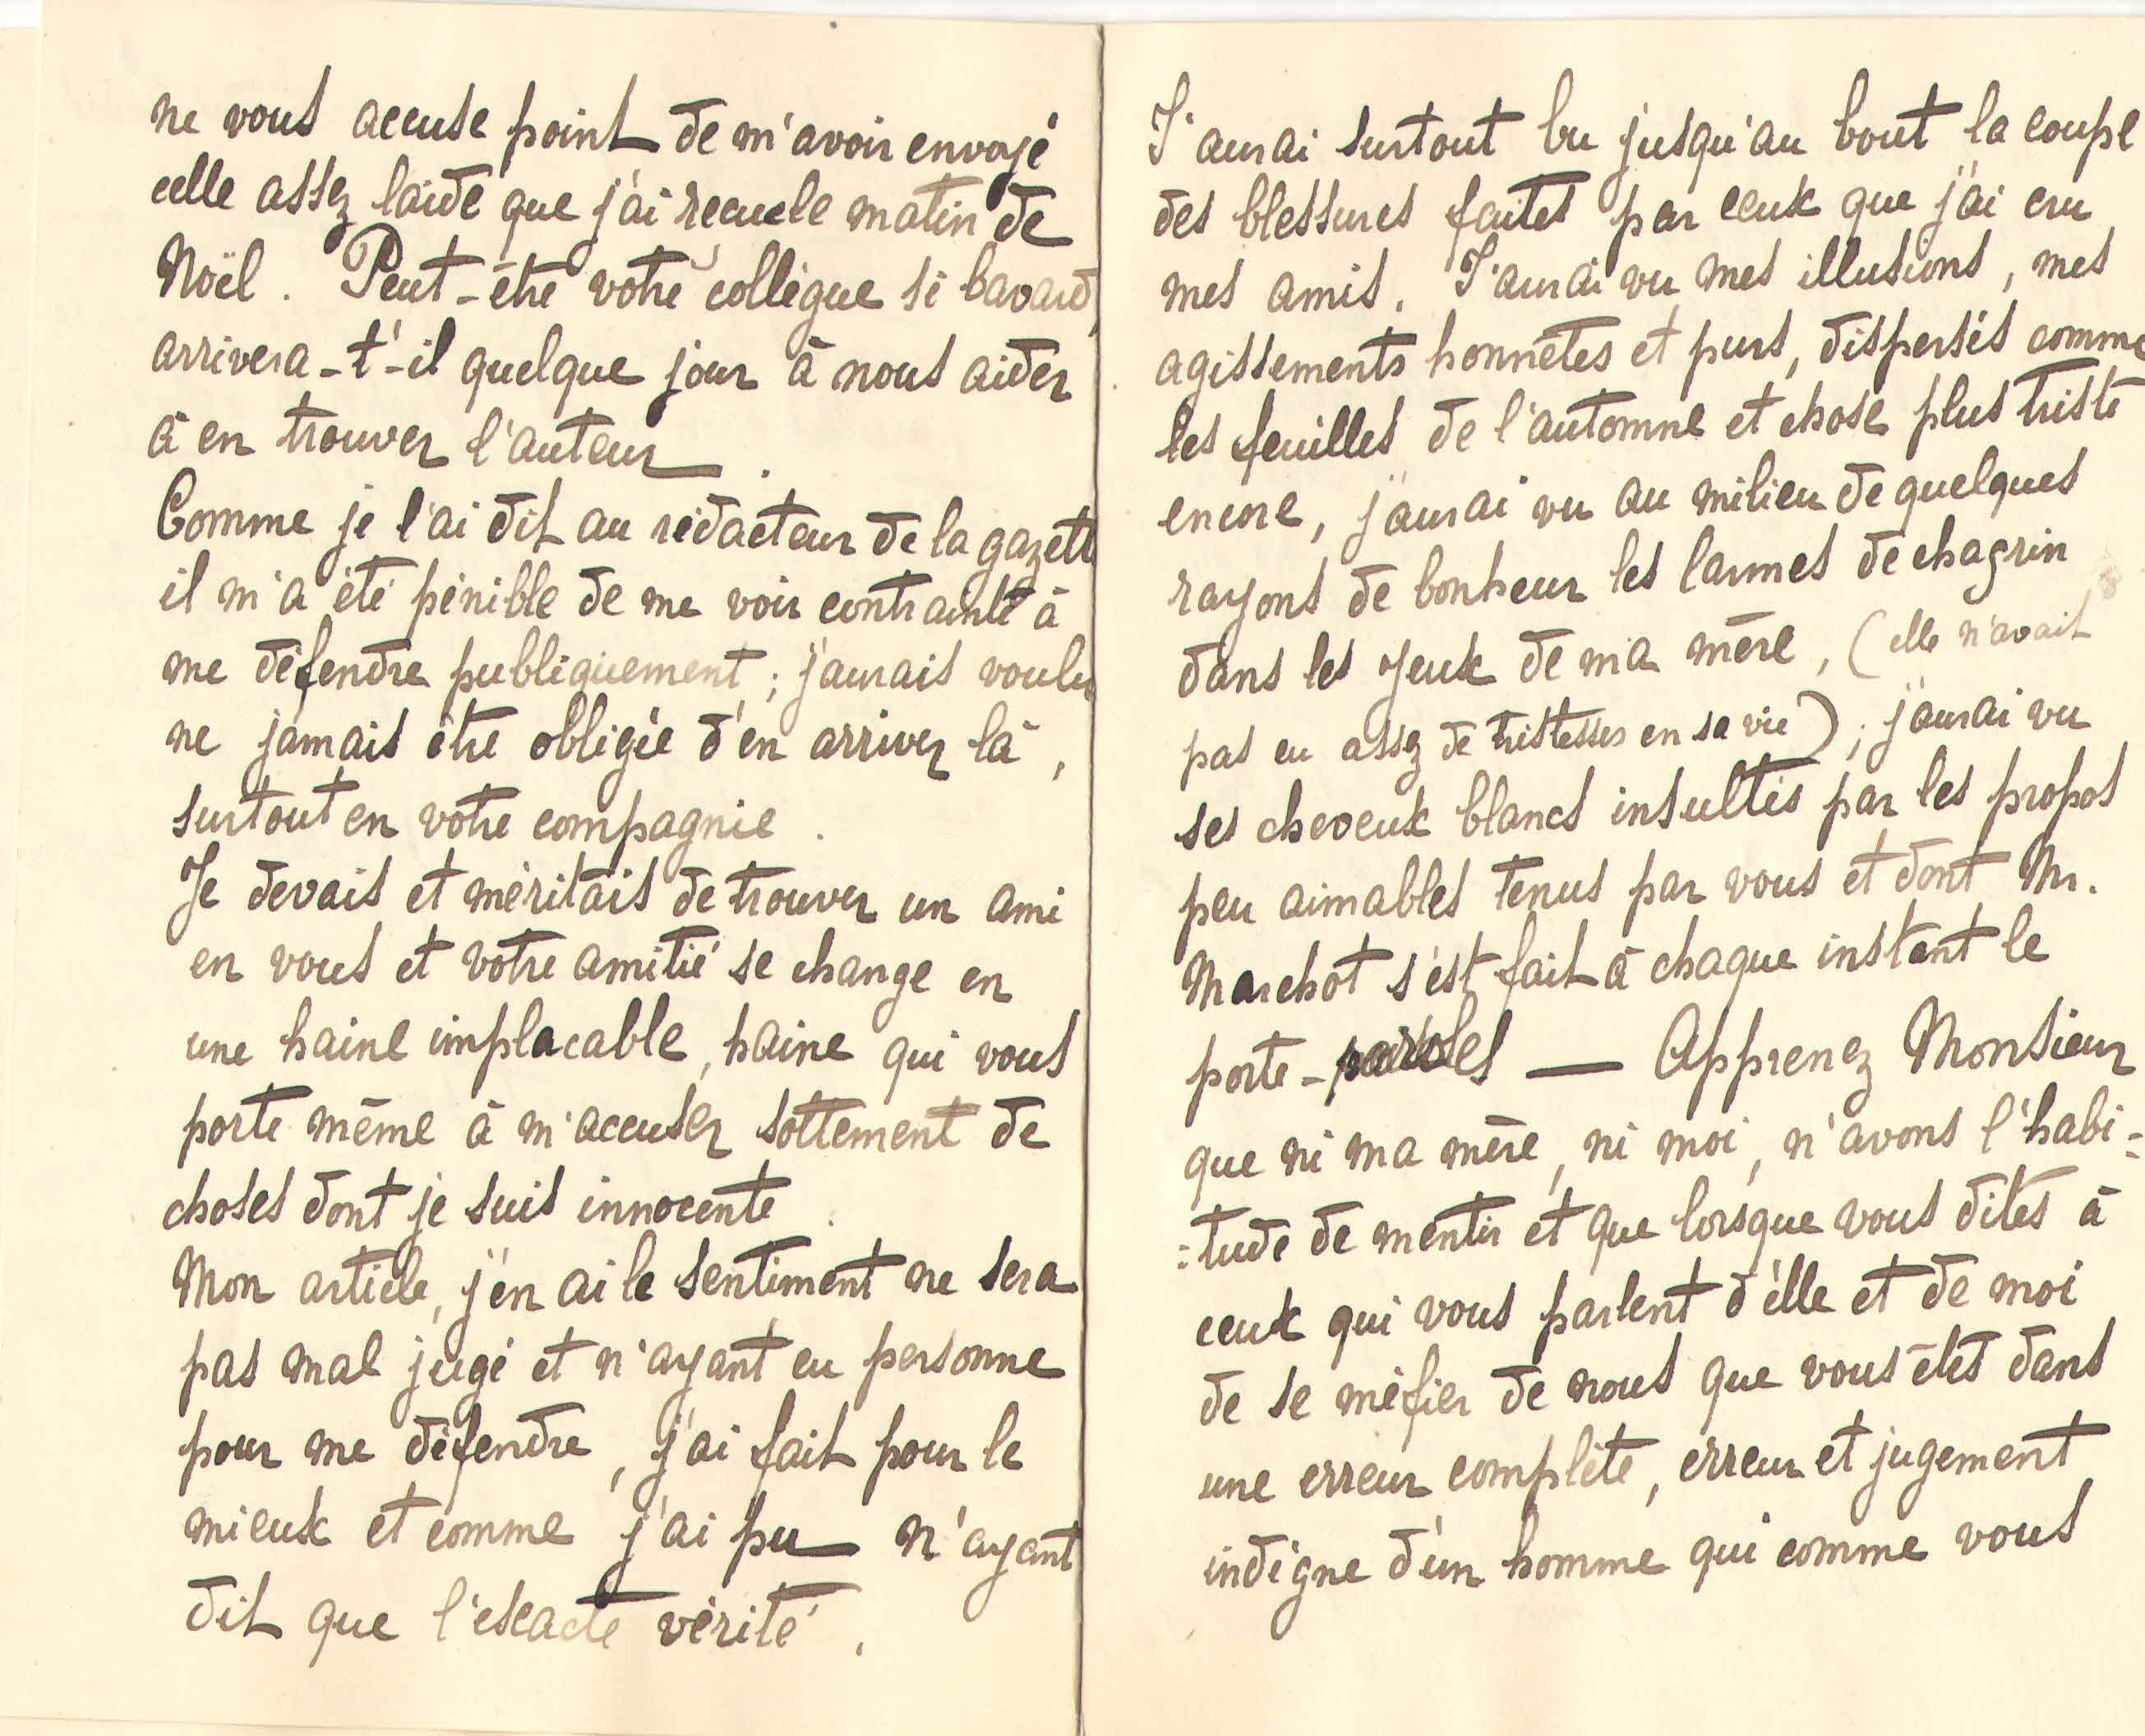 ne vous accuse point de m'avoir envoyé
celle assez laide que j'ai reçue le matin de
Noël. Peut-être votre collègue si bavard,
arrivera-t'-il quelque jour à nous aider
à en trouver l'auteur.
Comme je l'ai dit au rédacteur de la gazette
il m'a été pénible de me voir contrainte à
me défendre publiquement; j'aurais voulu
ne jamais être obligée d'en arriver là,
surtout en votre compagnie.
Je devais et méritais de trouver un ami
en vous et votre amitié se change en
une haine implacable, haine qui vous
porte même à m'accuser sottement de
choses dont je suis innocente.
Mon article, j'en ai le sentiment ne sera
pas mal jugé et n'ayant eu personne
pour me défendre, j'ai fait pour le
mieux et comme j'ai pu n'ayant
dit que l'exacte vérité.
J'aurai surtout bu jusqu'au bout la coupe
des blessures faites par ceux que j'ai cru
mes amis. J'aurai vu mes illusions, mes
agissements honnêtes et purs, dispersés comme
les feuilles de l'automne et chose plus triste
encore, j'aurai vu au milieu de quelques
rayons de bonheur les larmes de chagrin
dans les yeux de ma mère, (elle n'avait
pas eu assez de tristesses en sa vie); j'aurai vu
ses cheveux blancs insultés par les propos
peu aimables tenus par vous et dont Mr.
Marchot s'est fait à chaque instant le
porte-paroles — Apprenez Monsieur
que ni ma mère, ni moi, n'avons l'habi=
=tude de mentir et que lorsque vous dites à
ceux qui vous parlent d'elle et de moi
de se méfier de nous que vous êtes dans
une erreur complète, erreur et jugement
indigne d'un homme qui comme vous